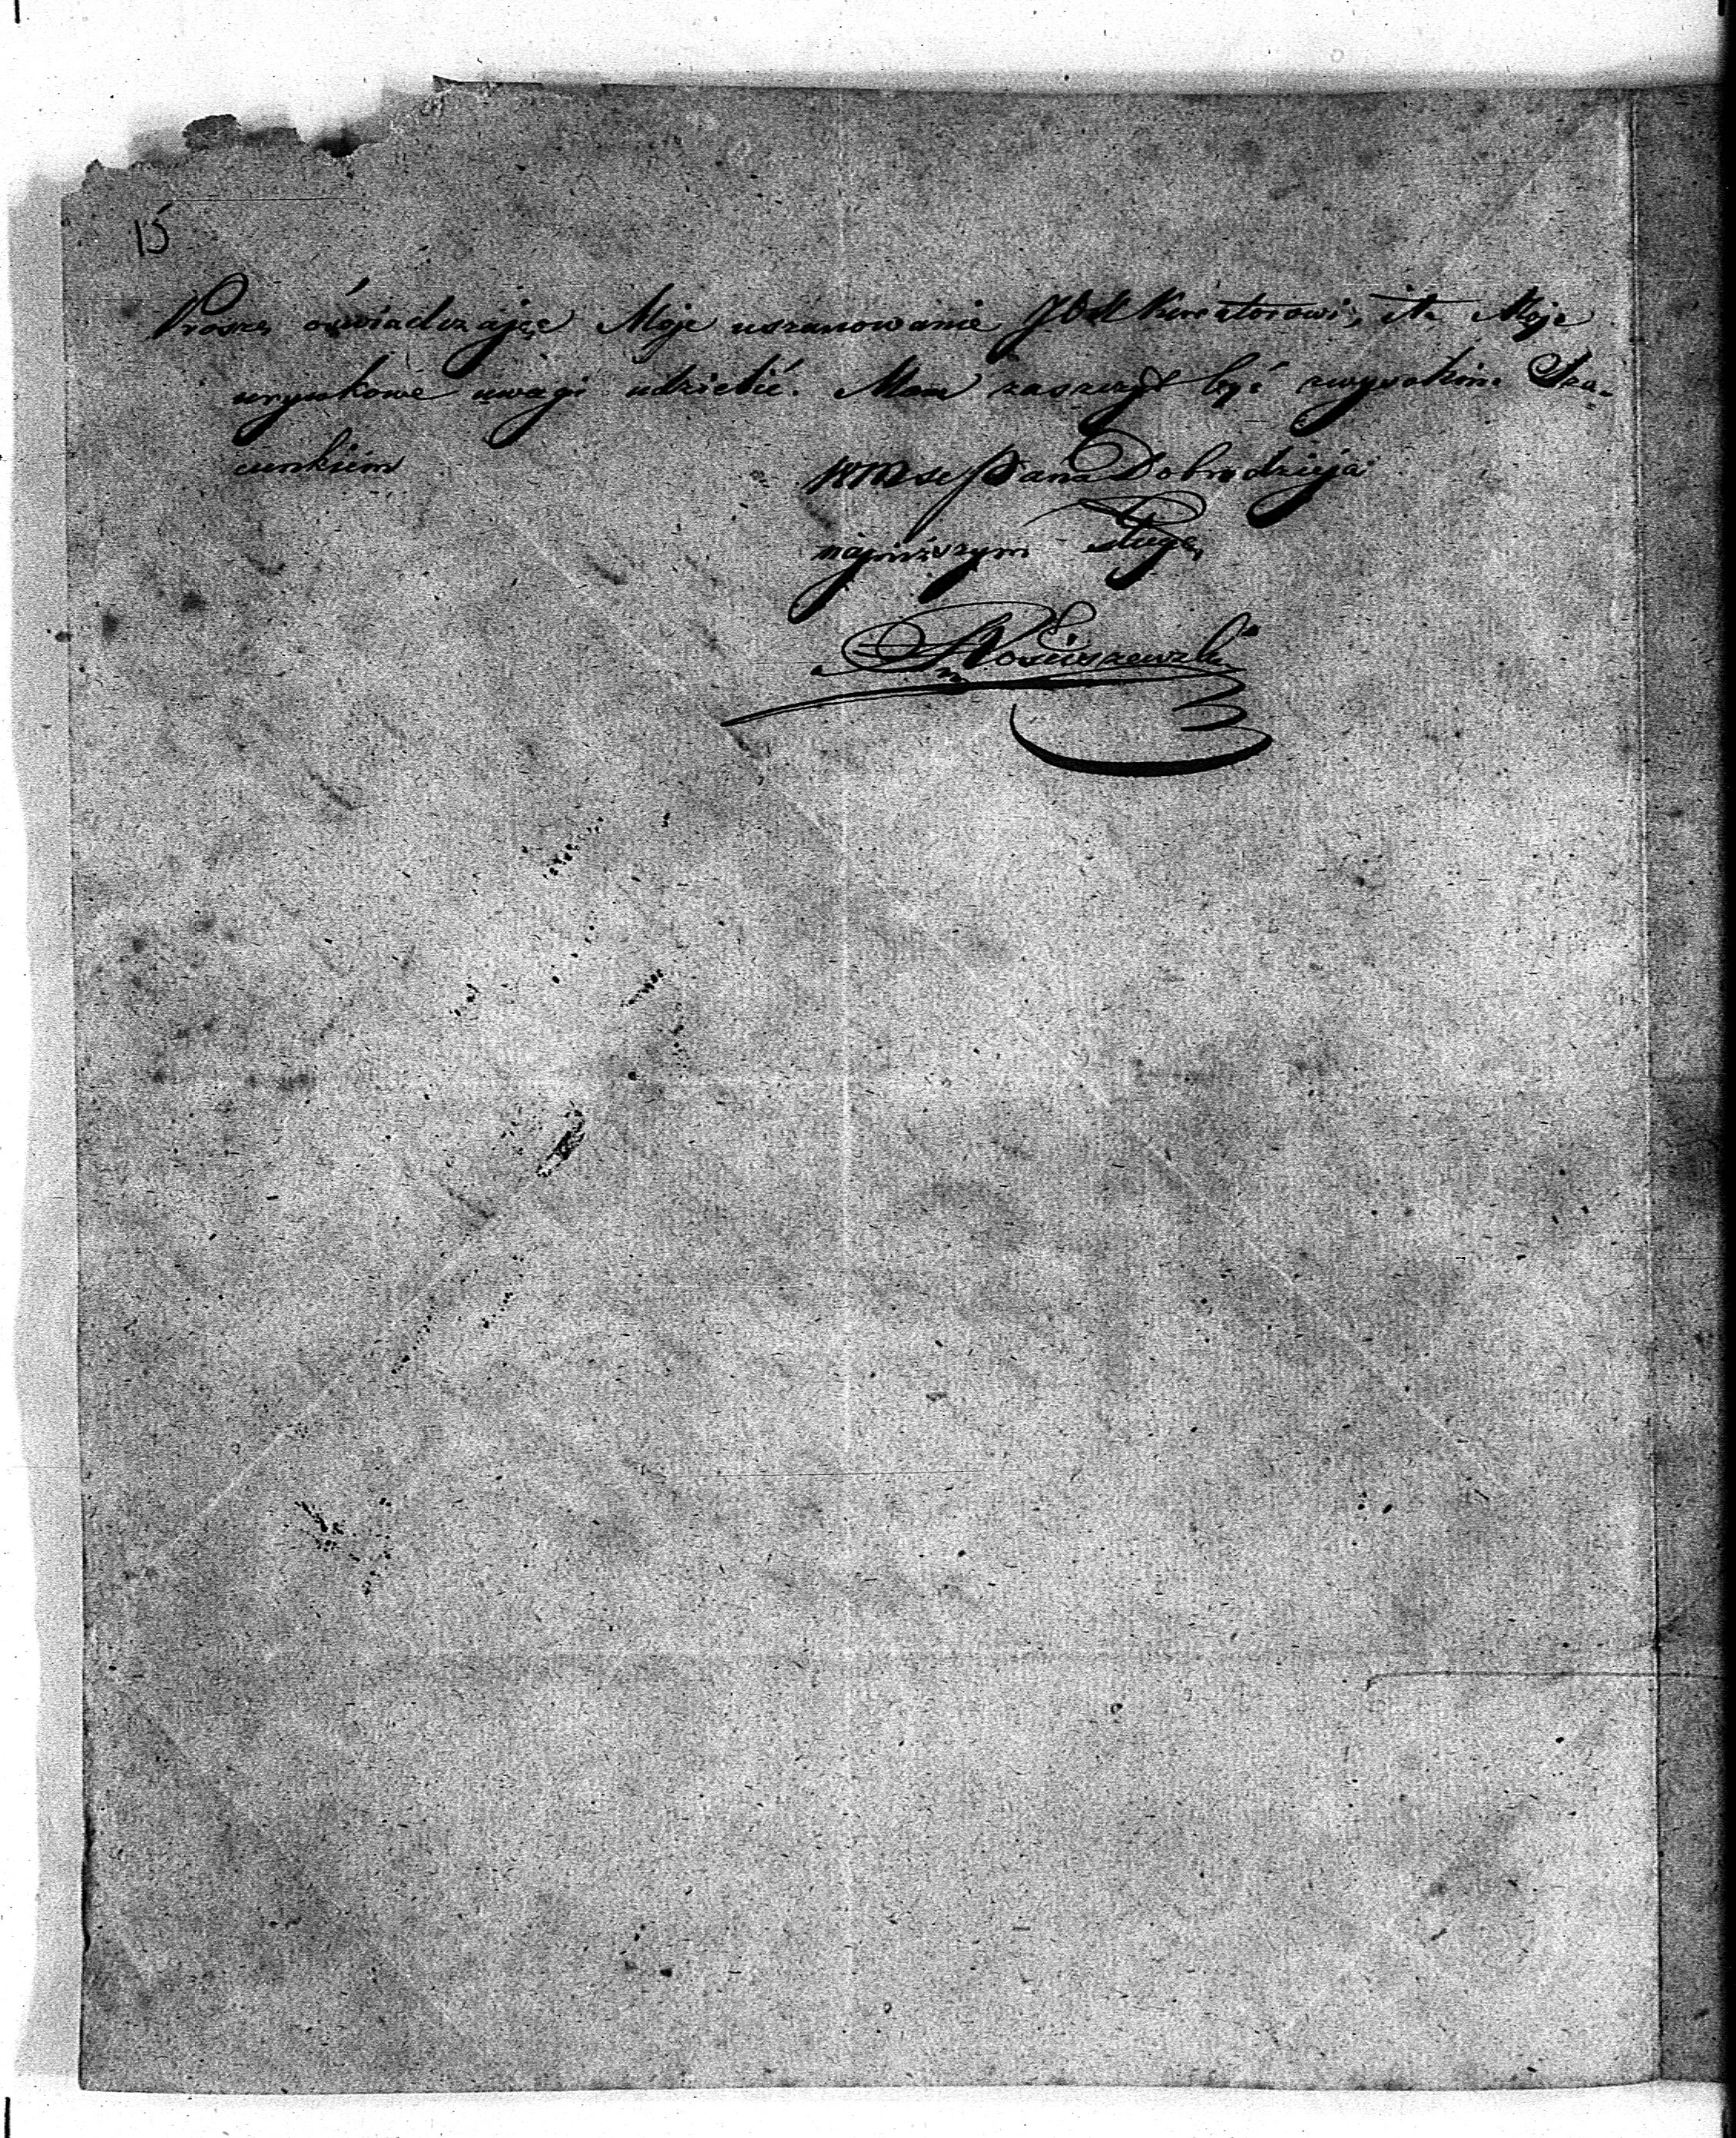 15
Proszę oświadczając Moje uszanowanie Kuratorowi, i te Moje
urywkowe uwagi udzielić. Mam zaszczyt być z wysokim Sza-
cunkiem
WMsc Pana Dobrodzieja
najniższym Sługą
Kościuszewski